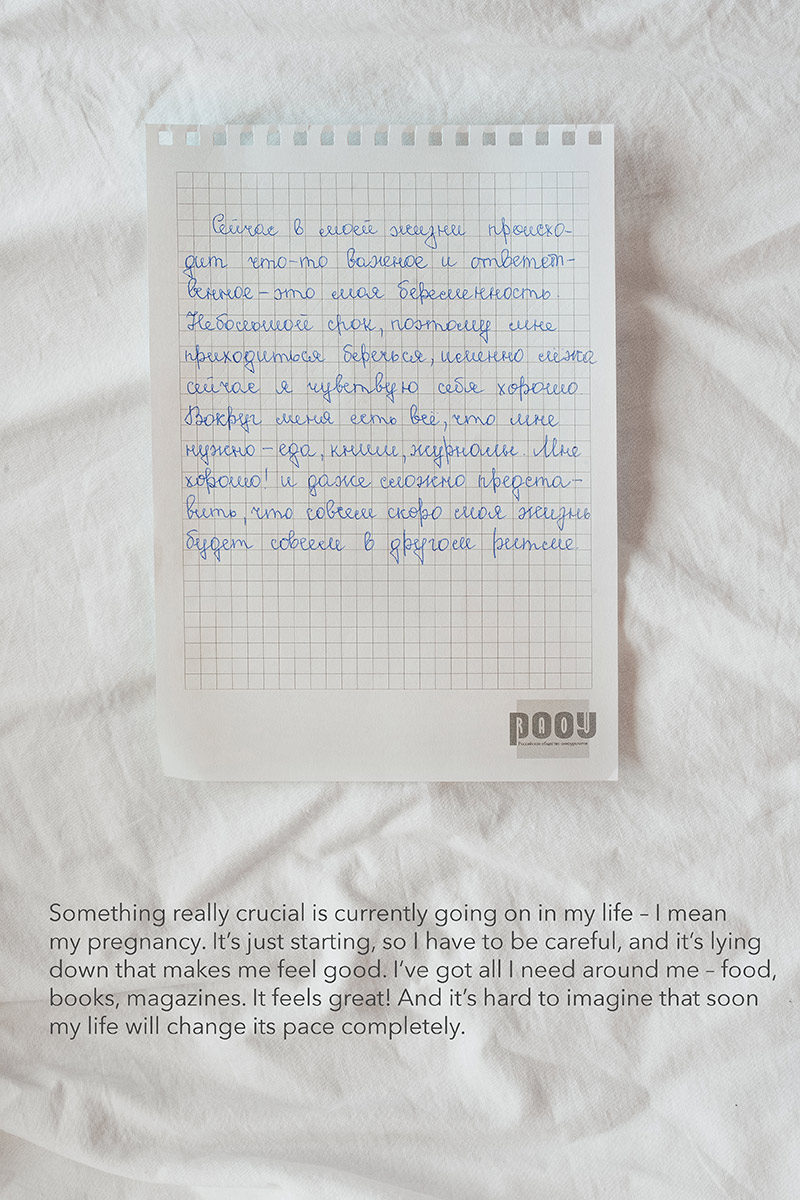 Сейчас в моей жизни происхо-
дит что-то важное и ответст-
венное – это моя беременность.
Небольшой срок, поэтому мне
приходиться беречься, именно лёжа
сейчас я чувствую себя хорошо.
Вокруг меня есть всё, что мне
нужно – еда, книги, журналы. Мне
хорошо! и даже сложно предста-
вить, что совсем скоро моя жизнь
будет совсем в другом ритме.
РООУ
RAOU
Российское общество онкоурологов
Something really crucial is currently going on in my life – I mean
my pregnancy. It's just starting, so I have to be careful, and it's lying
down that makes me feel good. I've got all I need around me – food,
books, magazines. It feels great! And it's hard to imagine that soon
my life will change its pace completely.